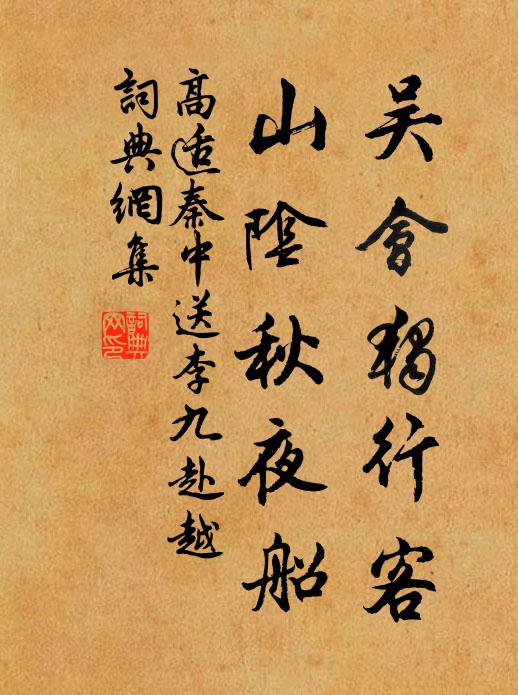 吴會獨行客
山陰秋夜船
高适秦中送李九赴越
詞典網集
詞典網印